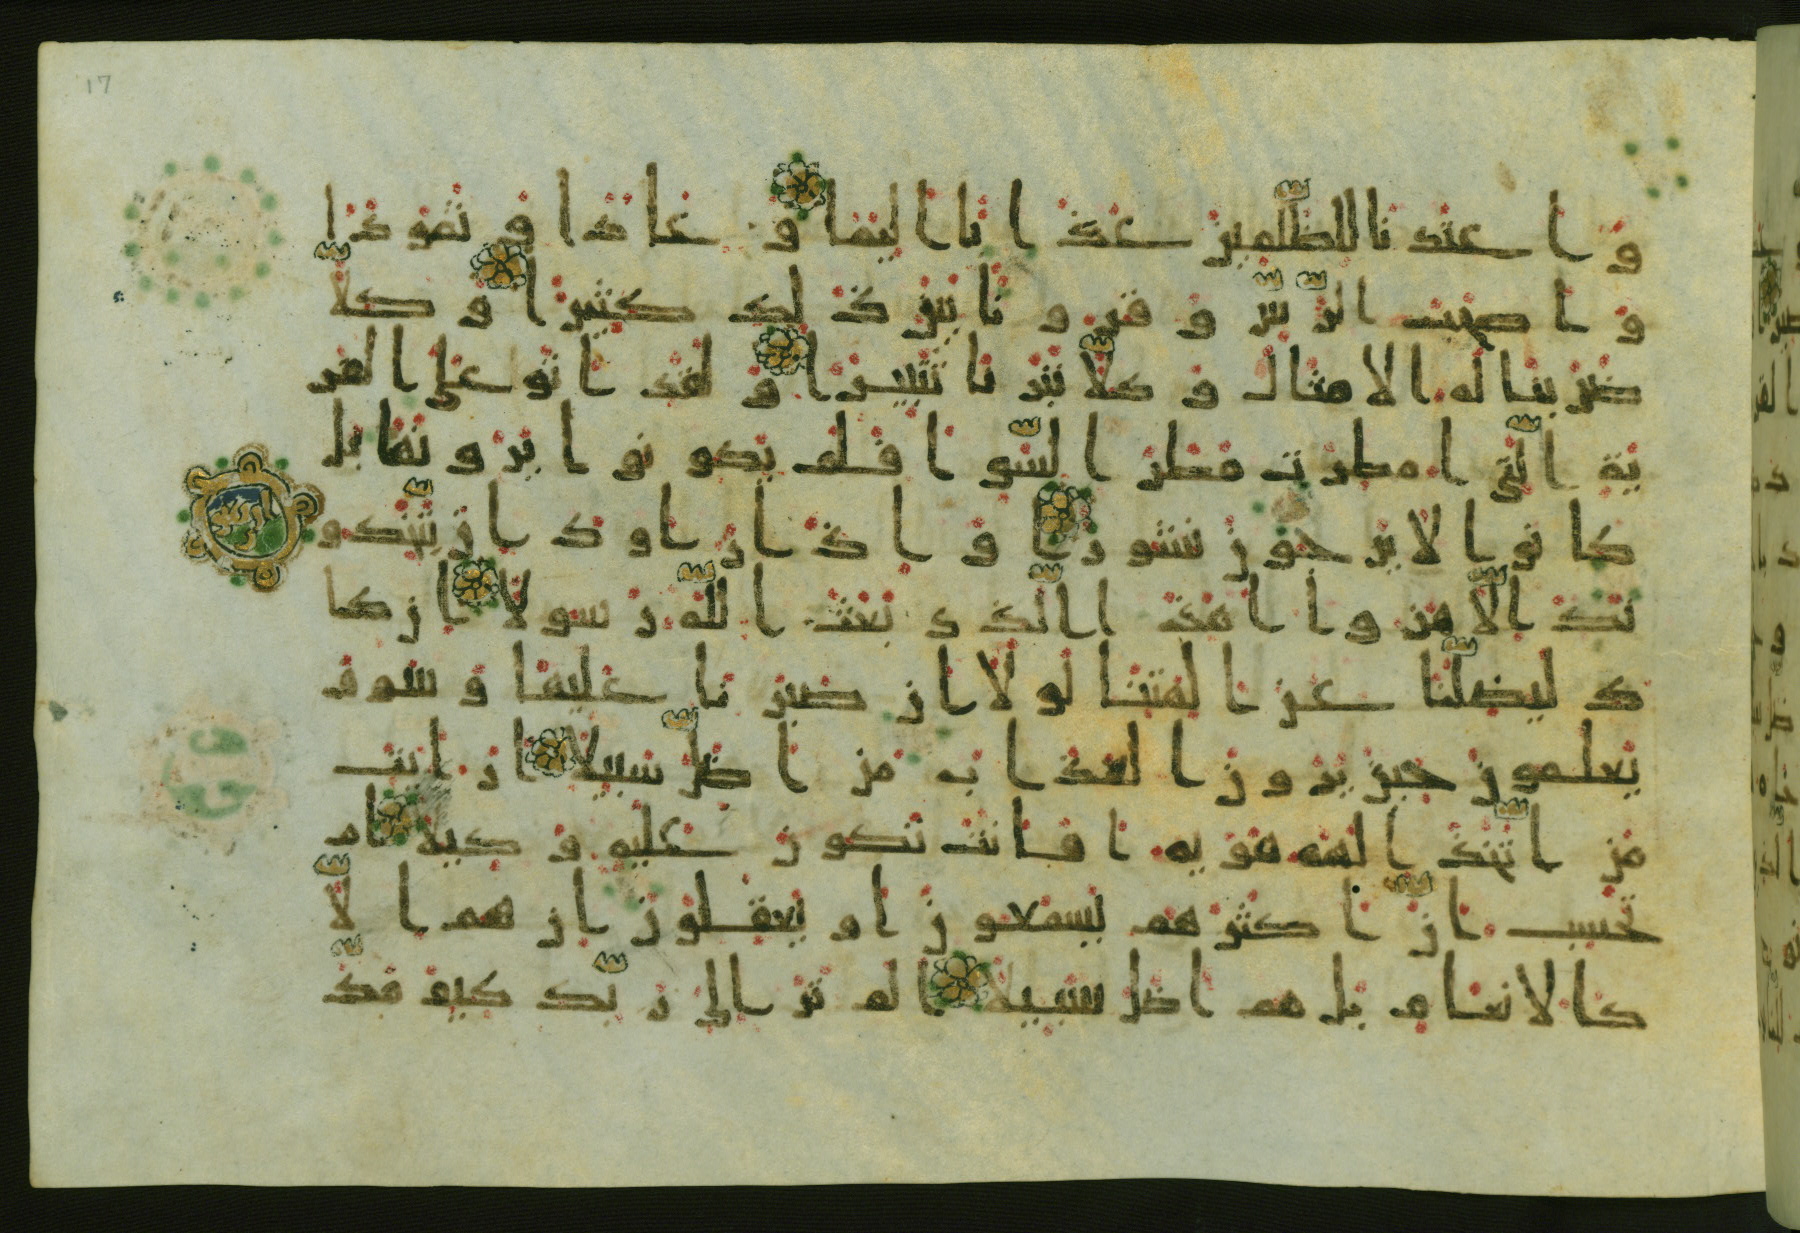 17
و اعتدنا للظّلمين عذابا اليما و عادا و ثمودا
و اصحب الرّسّ و قرونا بين ذلك كثيرا و كلّا
ضربنا له الامثال و كلّا تبرنا تتبيرا و لقد اتو على القر
ية الّتي امطرت مطر السّو افلم يكونوا يرونها بل
كانوا لا يرجون نشورا و اذا راوك ان يتّخذو
نك الّا هزوا اهذا الّذي بعث اللّه رسولا ان كا
د ليضلّنا عن الهتنا لولا ان صبرنا عليها و سوف
يعلمون حين يرون العذاب من اضلّ سبيلا اريت
من اتّخذ الهه هويه افانت تكون عليه و كيلا ام
تحسب انّ اكثرهم يسمعون او يعقلون ان هم الّا
كالانعام بل هم اضل سبيلا الم تر الى ربّك كيف مدّ